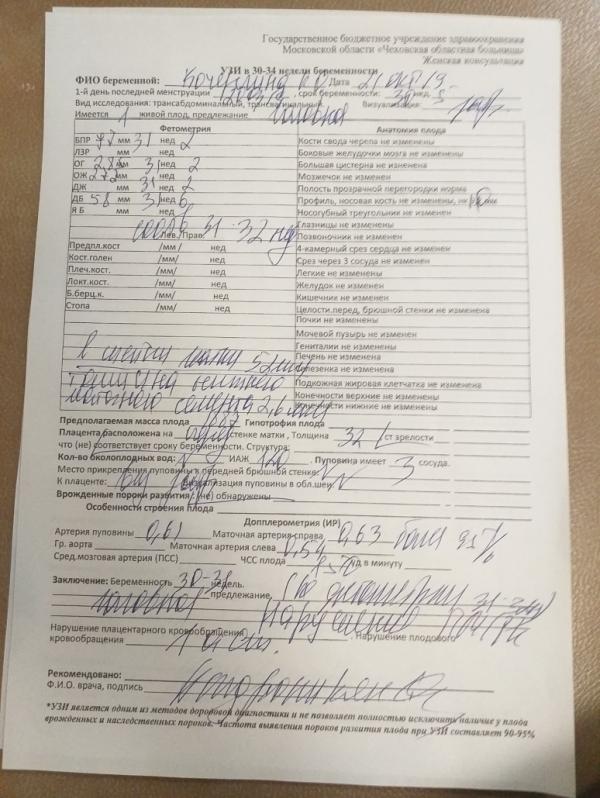 Государственное бюджетное учреждение здравоохранения
Московской области «Чеховская областная больница»
Женская консультация
УЗИ в 30-34 недели беременности
ФИО беременной: Дата 21
1-й день последней менструации , срок беременности: 30 нед. 5
Вид исследования: трансабдоминальный, трансвагинальный. Визуализация: удовл
Имеется 1 живой плод, предлежание головное
Фетометрия
БПР 77 мм 31 нед 2
ЛЗР мм нед
ОГ мм 31 нед 2
ОЖ 272 мм нед
ДЖ мм 31 нед 2
ДБ 58 мм 31 нед 6
Я Б мм нед
Лев./Прав. 31-32 нед
Предпл.кост /мм/ нед
Кост.голен /мм/ нед
Плеч.кост. /мм/ нед
Локт.кост. /мм/ нед
Б.берц.к. /мм/ нед
Стопа /мм/ нед
шейки матки 52 мм
толщина нижнего
маточного сегмента 2,6 мм
Анатомия плода
Кости свода черепа не изменены
Боковые желудочки мозга не изменены
Большая цистерна не изменена
Мозжечок не изменен
Полость прозрачной перегородки норма
Профиль, носовая кость не изменены,
Носогубный треугольник не изменен
Глазницы не изменены
Позвоночник не изменен
4-камерный срез сердца не изменен
Срез через 3 сосуда не изменен
Легкие не изменены
Желудок не изменен
Кишечник не изменен
Целости.перед, брюшной стенки не изменена
Почки не изменены
Мочевой пузырь не изменен
Гениталии не изменены
Печень не изменена
Селезенка не изменена
Подкожная жировая клетчатка не изменена
Конечности верхние не изменены
Конечности нижние не изменены
Предполагаемая масса плода Гипотрофия плода
Плацента расположена на стенке матки , Толщина 32 1 ст зрелости
что (не) соответствует сроку беременности. Структура:
Кол-во околоплодных вод: N ИАЖ 120 . Пуповина имеет 3 сосуда.
Место прикрепления пуповины к передней брюшной стенке: N
К плаценте: Визуализация пуповины в обл.шеи: N
Врожденные пороки развития : (не) обнаружены
Особенности строения плода
Допплерометрия (ИР)
Артерия пуповины 0,61 Маточная артерия права 0,63 более 95%
Гр. аорта Маточная артерия слева 0,54
Сред.мозговая артерия (ПСС) ЧСС плода уд в минуту
Заключение: Беременность недель. По фетометрии 31-32 нед
головное предлежание, Нарушение
Нарушение плацентарного кровообращения , Нарушение плодового
кровообращения 1 А ст.
Рекомендовано:
Ф.И.О. врача, подпись
*УЗИ является одним из методов дородовой диагностики и не позволяет полностью исключить наличие у плода
врожденных и наследственных пороков. Частота выявления пороков развития плода при УЗИ составляет 90-95%